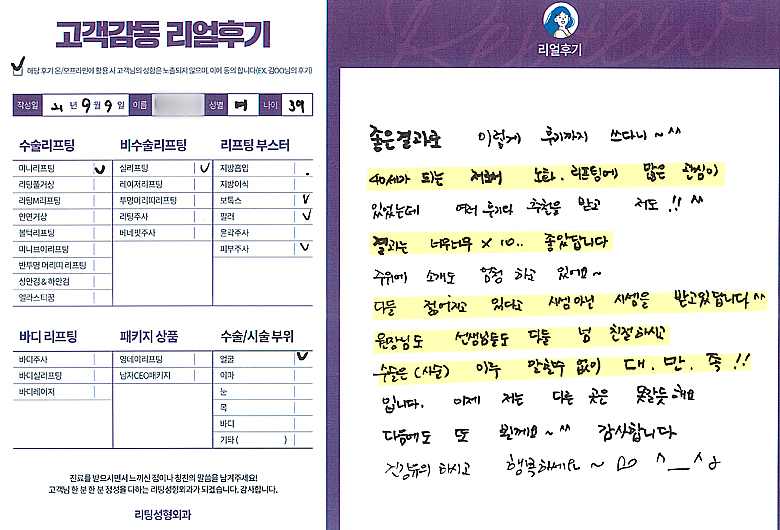 고객감동 리얼후기
해당 후기 온/오프라인에 활용 시 고객님의 성함은 노출되지 않으며, 이에 동의 합니다(EX. 김OO님의 후기)
작성일 21년 9월 9일 이름 성별 여 나이 39
수술리프팅
미니리프팅
리팅풀거상
리팅M리프팅
안면거상
볼턱리프팅
미니브이리프팅
반투명 머리띠 리프팅
상안검 & 하안검
엘라스티꿈
비수술리프팅
실리프팅
레이저리프팅
투명머리띠리프팅
리팅주사
버네핏주사
리프팅 부스터
지방흡입
지방이식
보톡스
필러
윤곽주사
피부주사
바디 리프팅
바디주사
바디실리프팅
바디레이저
패키지 상품
영데이리프팅
남자CEO패키지
수술/시술 부위
얼굴
이마
눈
목
바디
기타 ( )
진료를 받으시면서 느끼신 점이나 칭찬의 말씀을 남겨주세요!
고객님 한 분 한 분 정성을 다하는 리팅성형외과가 되겠습니다. 감사합니다.
리팅성형외과
리얼후기
좋은결과로 이렇게 후기까지 쓰다니~^^
40세가 되는 저로써 노화, 리프팅에 많은 관심이
있었는데 여러 후기와 추천을 받고 저도!! ^^
결과는 너무너무 x 10.. 좋았답니다
주위에 소개도 엄청 하고 있어요~
다들 젊어지고 있다고 시샘 아닌 시샘을 받고있답니다^^
원장님도 선생님들도 다들 넘 친절하시고
수술은 (시술) 아주 말할수 없이 대. 만. 족!!
입니다. 이제 저는 다른 곳은 못갈듯 해요
다음에도 또 뵐께요~^^ 감사합니다
건강유의 하시고 행복하세요~ ^__^